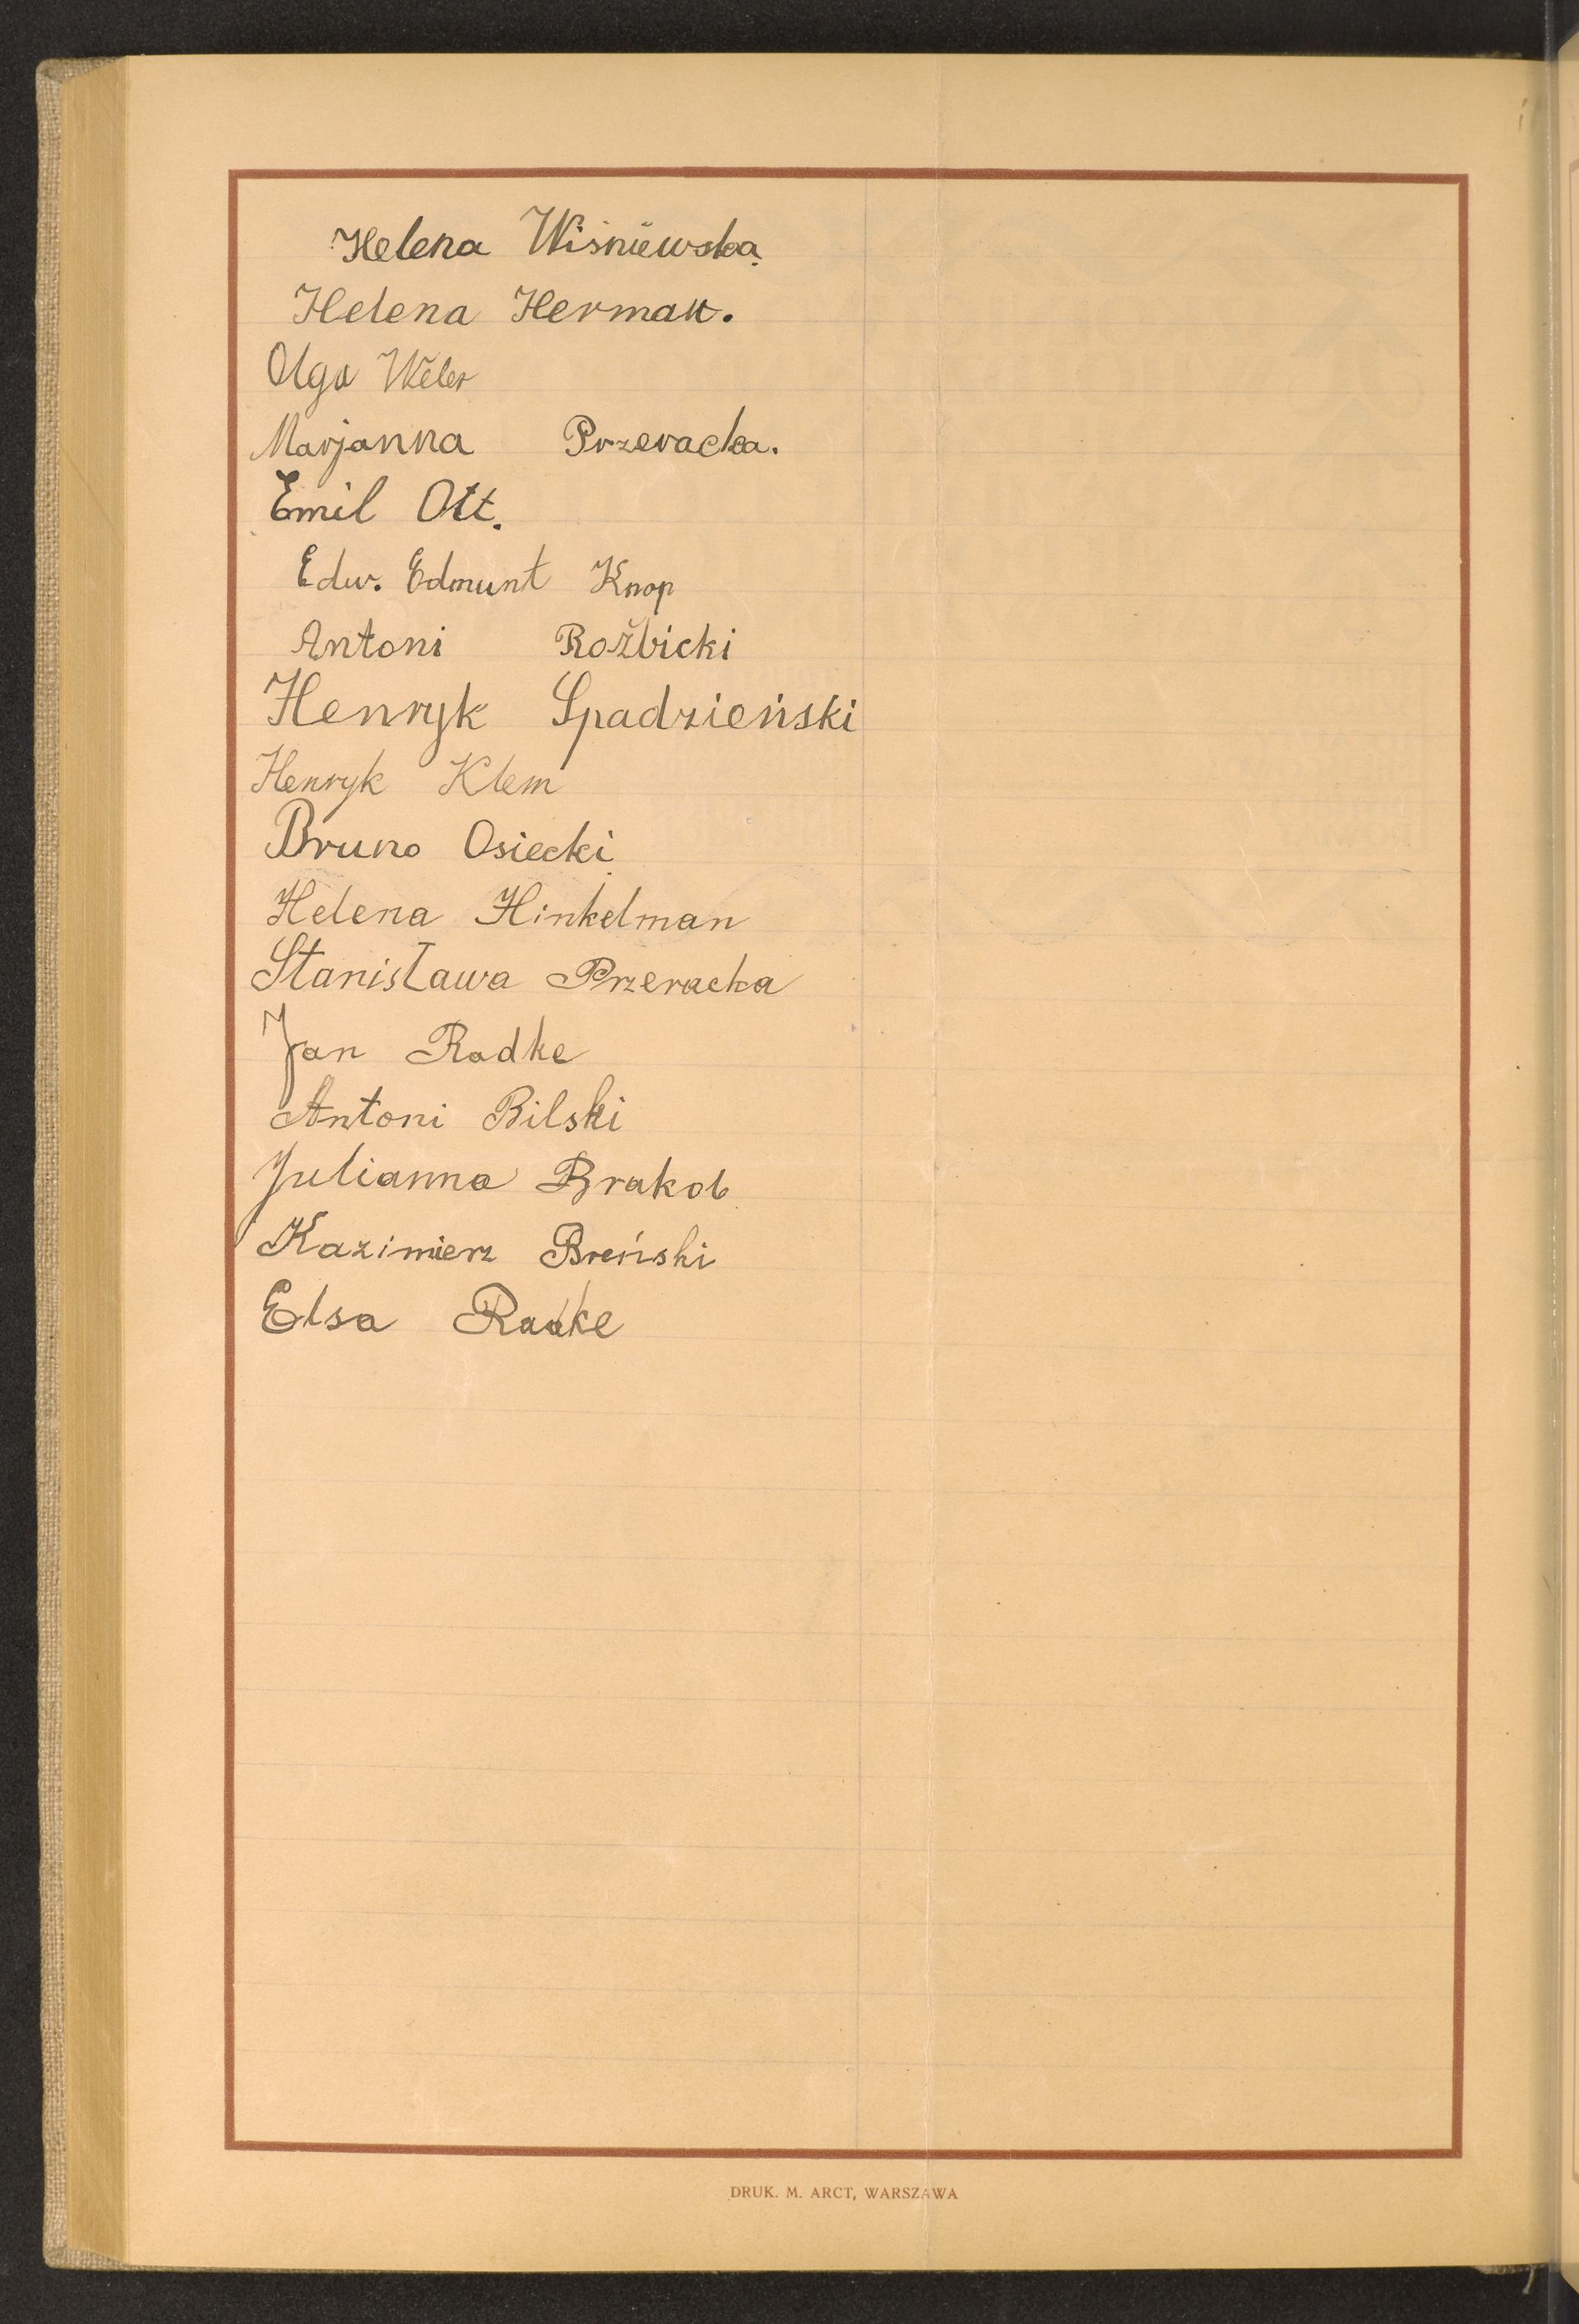 Helena Wiśniewska
Helena Herman.
Olga Weler
Marjanna Przeracka.
Emil Ott.
Edw. Edmunt Knop
Antoni Rożbicki
Henryk Spadzieński
Henryk Klem
Bruno Osiecki
Helena Hinkelman
Stanisława Przeracka
Jan Radke
Antoni Bilski
Julianna Brakob
Kazimierz Breński
Elsa Radke
DRUK. M. ARCT, WARSZAWA